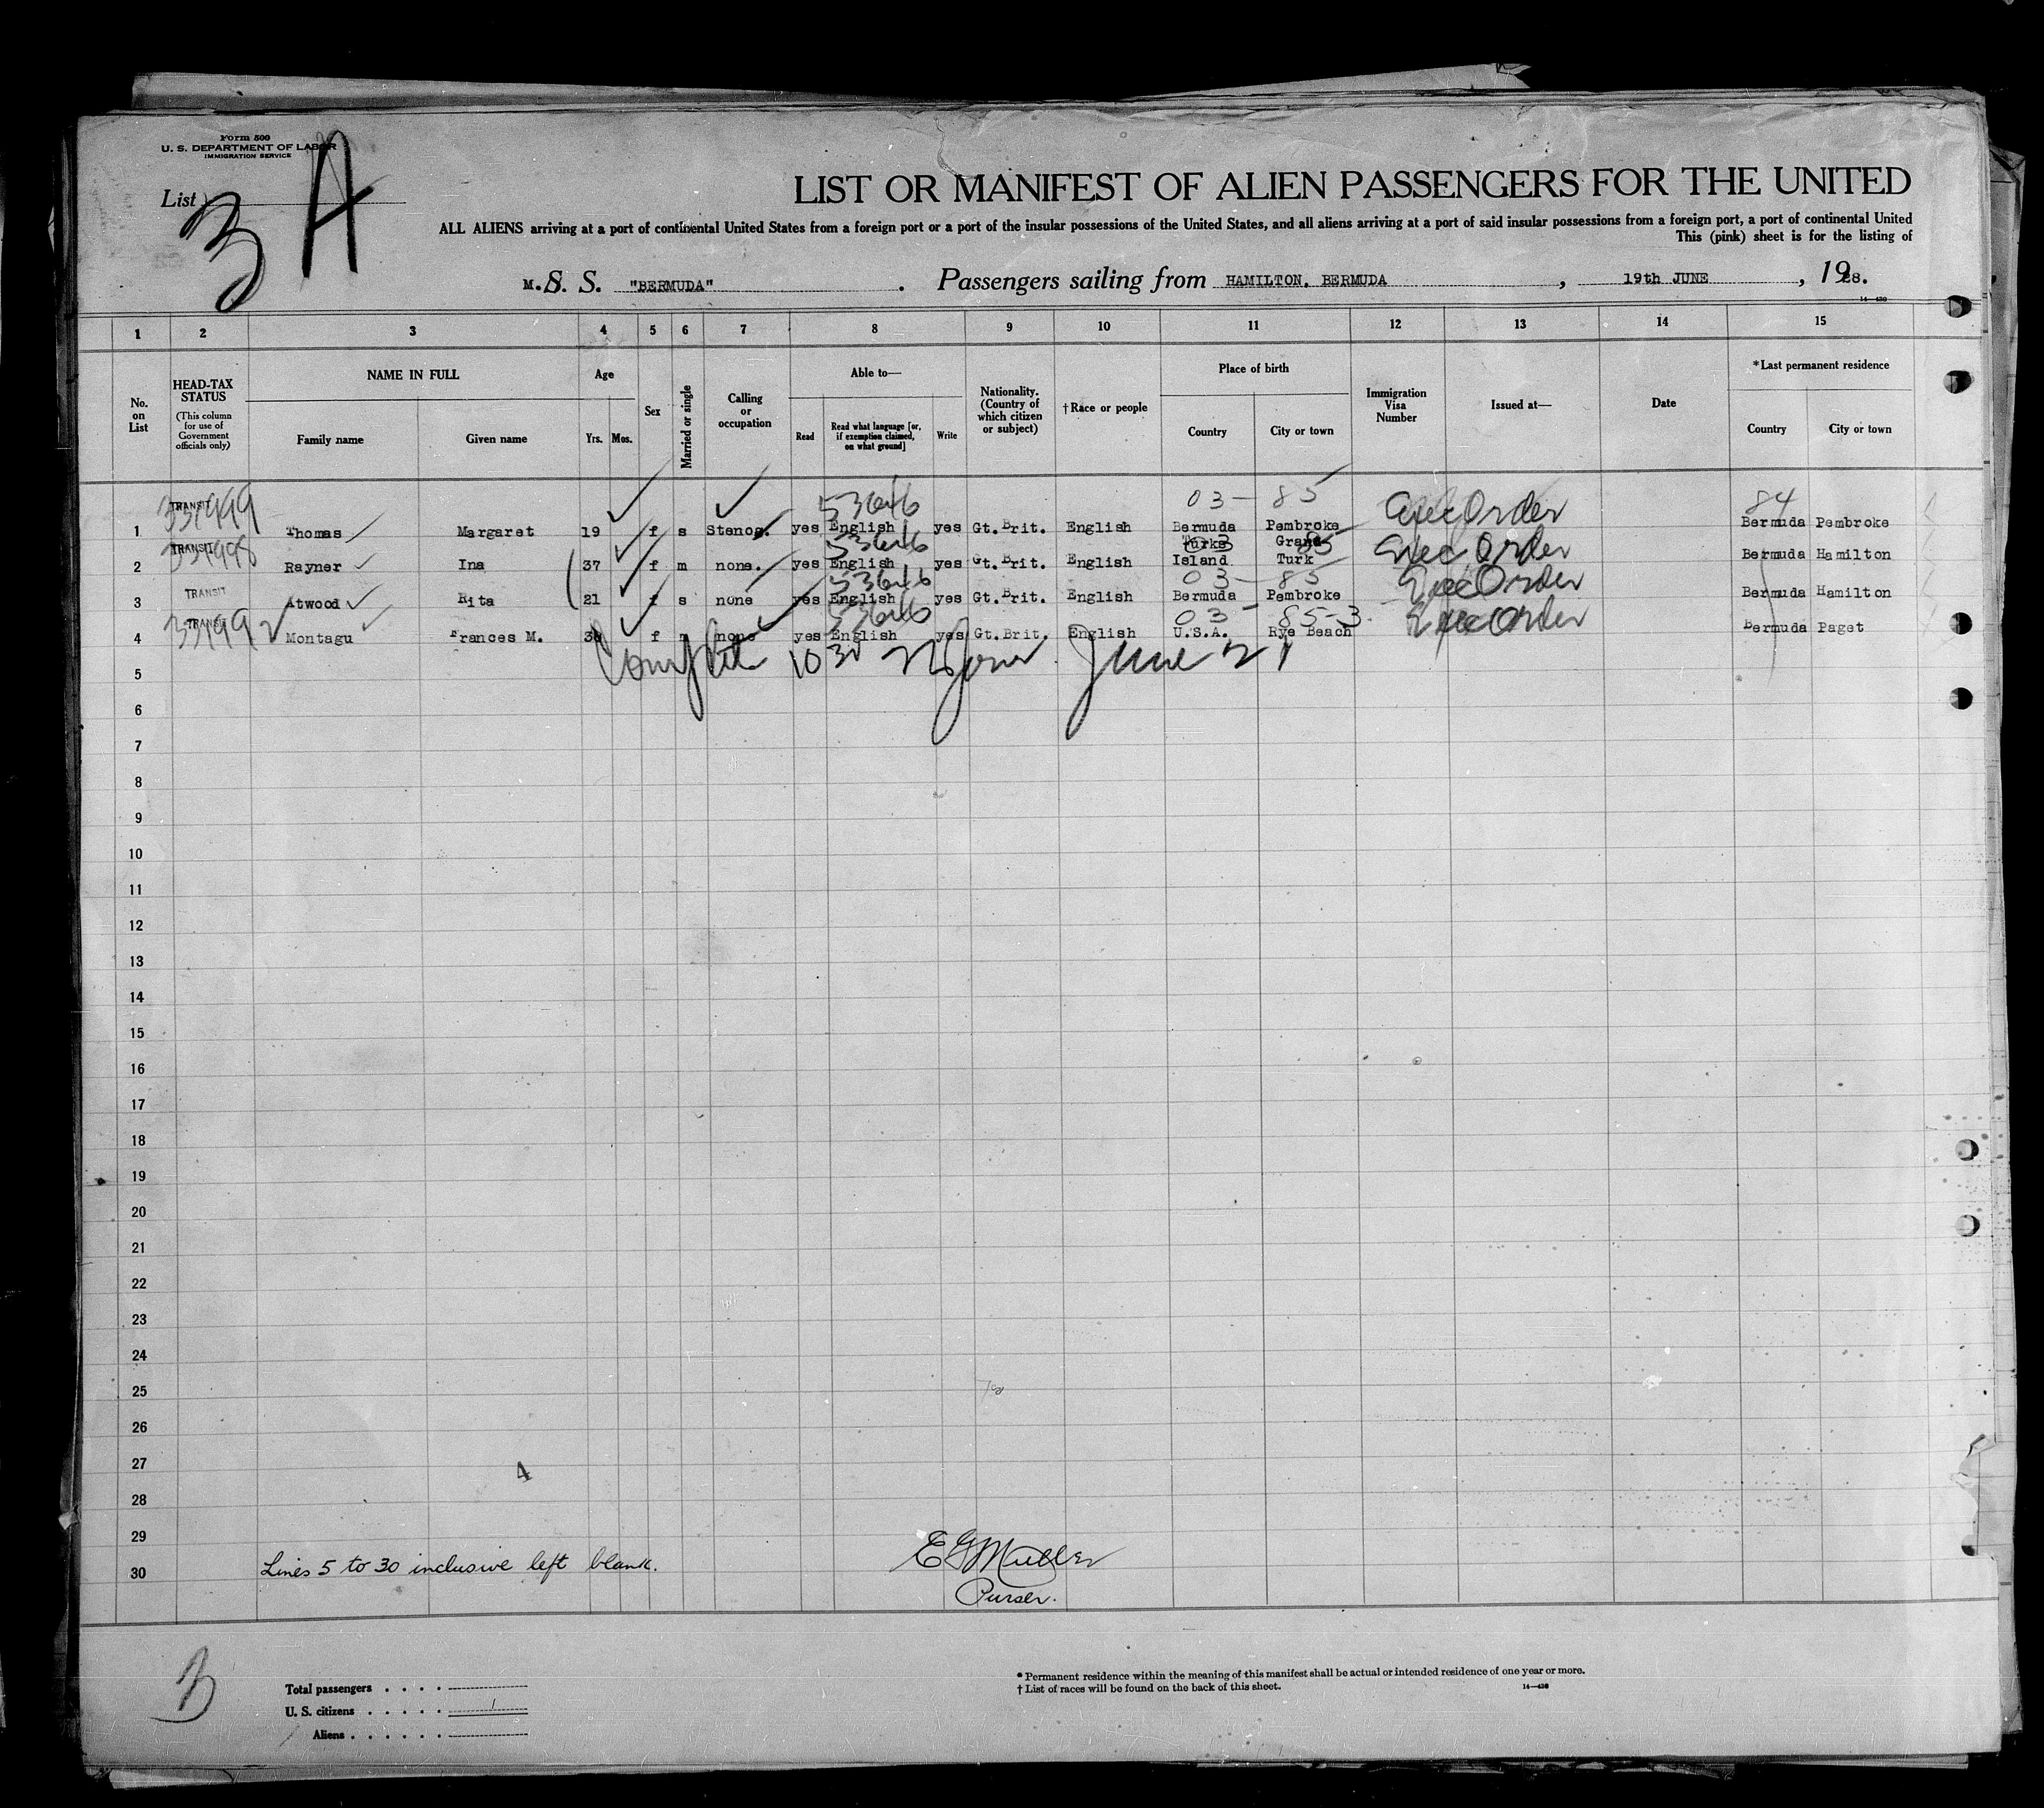 Form 500
U. S. DEPARTMENT OF LABOR
IMMIGRATION SERVICE
List 3 A
LIST OR MANIFEST OF ALIEN PASSENGERS FOR THE UNITED
ALL ALIENS arriving at a port of continental United States from a foreign port or a port of the insular possessions of the United States, and all aliens arriving at a port of said insular possessions from a foreign port, a port of continental United
This (pink) sheet is for the listing of
M. S. S. "BERMUDA" . Passengers sailing from HAMILTON, BERMUDA , 19th JUNE , 1928.
14—430
1 2 3 4 5 6 7 8 9 10 11 12 13 14 15
No. on List
HEAD-TAX STATUS (This column for use of Government officials only)
NAME IN FULL
Family name Given name
Age
Yrs. Mos.
Sex
Married or single
Calling or occupation
Able to—
Read
Read what language [or, if exemption claimed, on what ground]
Write
Nationality. (Country of which citizen or subject)
†Race or people
Place of birth
Country City or town
Immigration Visa Number
Issued at—
Date
*Last permanent residence
Country City or town
TRANSIT 53646 03 — 85 84
1 Thomas Margaret 19 f s Stenog. yes English yes Gt. Brit. English Bermuda Pembroke Exec Order Bermuda Pembroke
TRANSIT 53646 03 85
2 Rayner Ina 37 f m none. yes English yes Gt. Brit. English Turks Island Grand Turk Exec Order Bermuda Hamilton
TRANSIT 53646 03 — 85
3 Atwood Rita 21 f s none yes English yes Gt. Brit. English Bermuda Pembroke Exec Order Bermuda Hamilton
TRANSIT 53646 03 — 85-3
4 Montagu Frances M. f none yes English yes Gt. Brit. English U.S.A. Rye Beach Exec Order Bermuda Paget
5 1030 June 21
6
7
8
9
10
11
12
13
14
15
16
17
18
19
20
21
22
23
24
25
26
27
4
28
29
30 Lines 5 to 30 inclusive left blank.
E G Muller
Purser.
3
Total passengers . . . .
U. S. citizens . . . . . 1
Aliens . . . . . .
* Permanent residence within the meaning of this manifest shall be actual or intended residence of one year or more.
† List of races will be found on the back of this sheet.
14—430